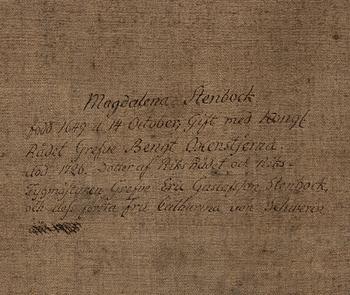 Magdalena Stenbock
född 1649 d. 14 October, Gift med Kongl
Rådet Grefve Bengt Oxenstjerna.
död 1726. Dotter af Riks Rådet och Riks-
Tygmästaren Grefve Eric Gustafsson Stenbock,
och dess första Fru Catharina von Schweren